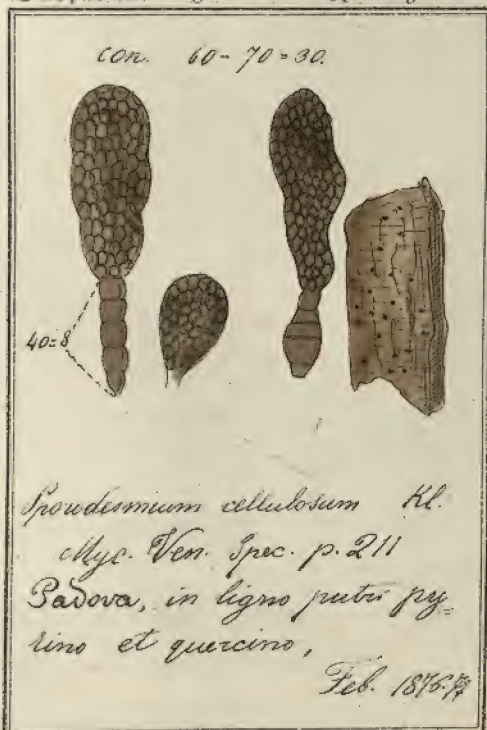 con. 60 = 70 = 30.
40=8
Sporodesmium cellulosum Kl.
Myc. Ven. Spec. p. 211
Padova, in ligno putri py=
rino et quercino,
Feb. 1876.